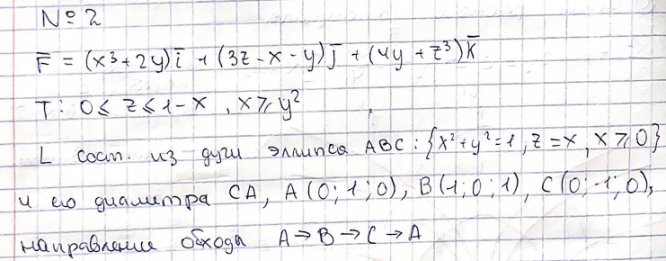 № 2
F̅ = (x³+2y)i̅ + (3z-x-y)j̅ + (4y+z³)k̅
T: 0≤ z ≤ 1-x , x ≥ y²
L сост. из дуги эллипса ABC: {x²+y²=1, z=x, x≥0}
и его диаметра CA, A(0;1;0), B(1;0;1), C(0;-1;0),
направление обхода A→B→C→A